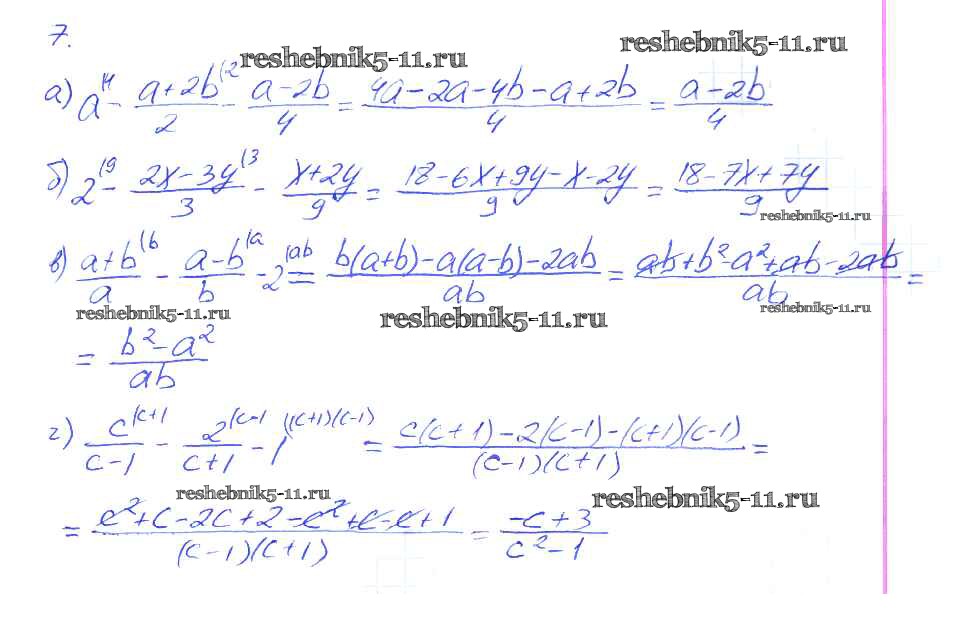 7.
reshebnik5-11.ru reshebnik5-11.ru
а) a^(4 - (a+2b)/2^(2 - (a-2b)/4 = (4a-2a-4b-a+2b)/4 = (a-2b)/4
б) 2^(9 - (2x-3y)/3^(3 - (x+2y)/9 = (18-6x+9y-x-2y)/9 = (18-7x+7y)/9
reshebnik5-11.ru
в) (a+b)/a^(b - (a-b)/b^(a - 2^(ab = (b(a+b)-a(a-b)-2ab)/ab = (ab+b²-a²+ab-2ab)/ab =
reshebnik5-11.ru reshebnik5-11.ru reshebnik5-11.ru
= (b²-a²)/ab
г) c/(c-1)^(c+1 - 2/(c+1)^(c-1 - 1^((c+1)(c-1) = (c(c+1)-2(c-1)-(c+1)(c-1))/((c-1)(c+1)) =
reshebnik5-11.ru reshebnik5-11.ru
= (c²+c-2c+2-c²+c-c+1)/((c-1)(c+1)) = (-c+3)/(c²-1)